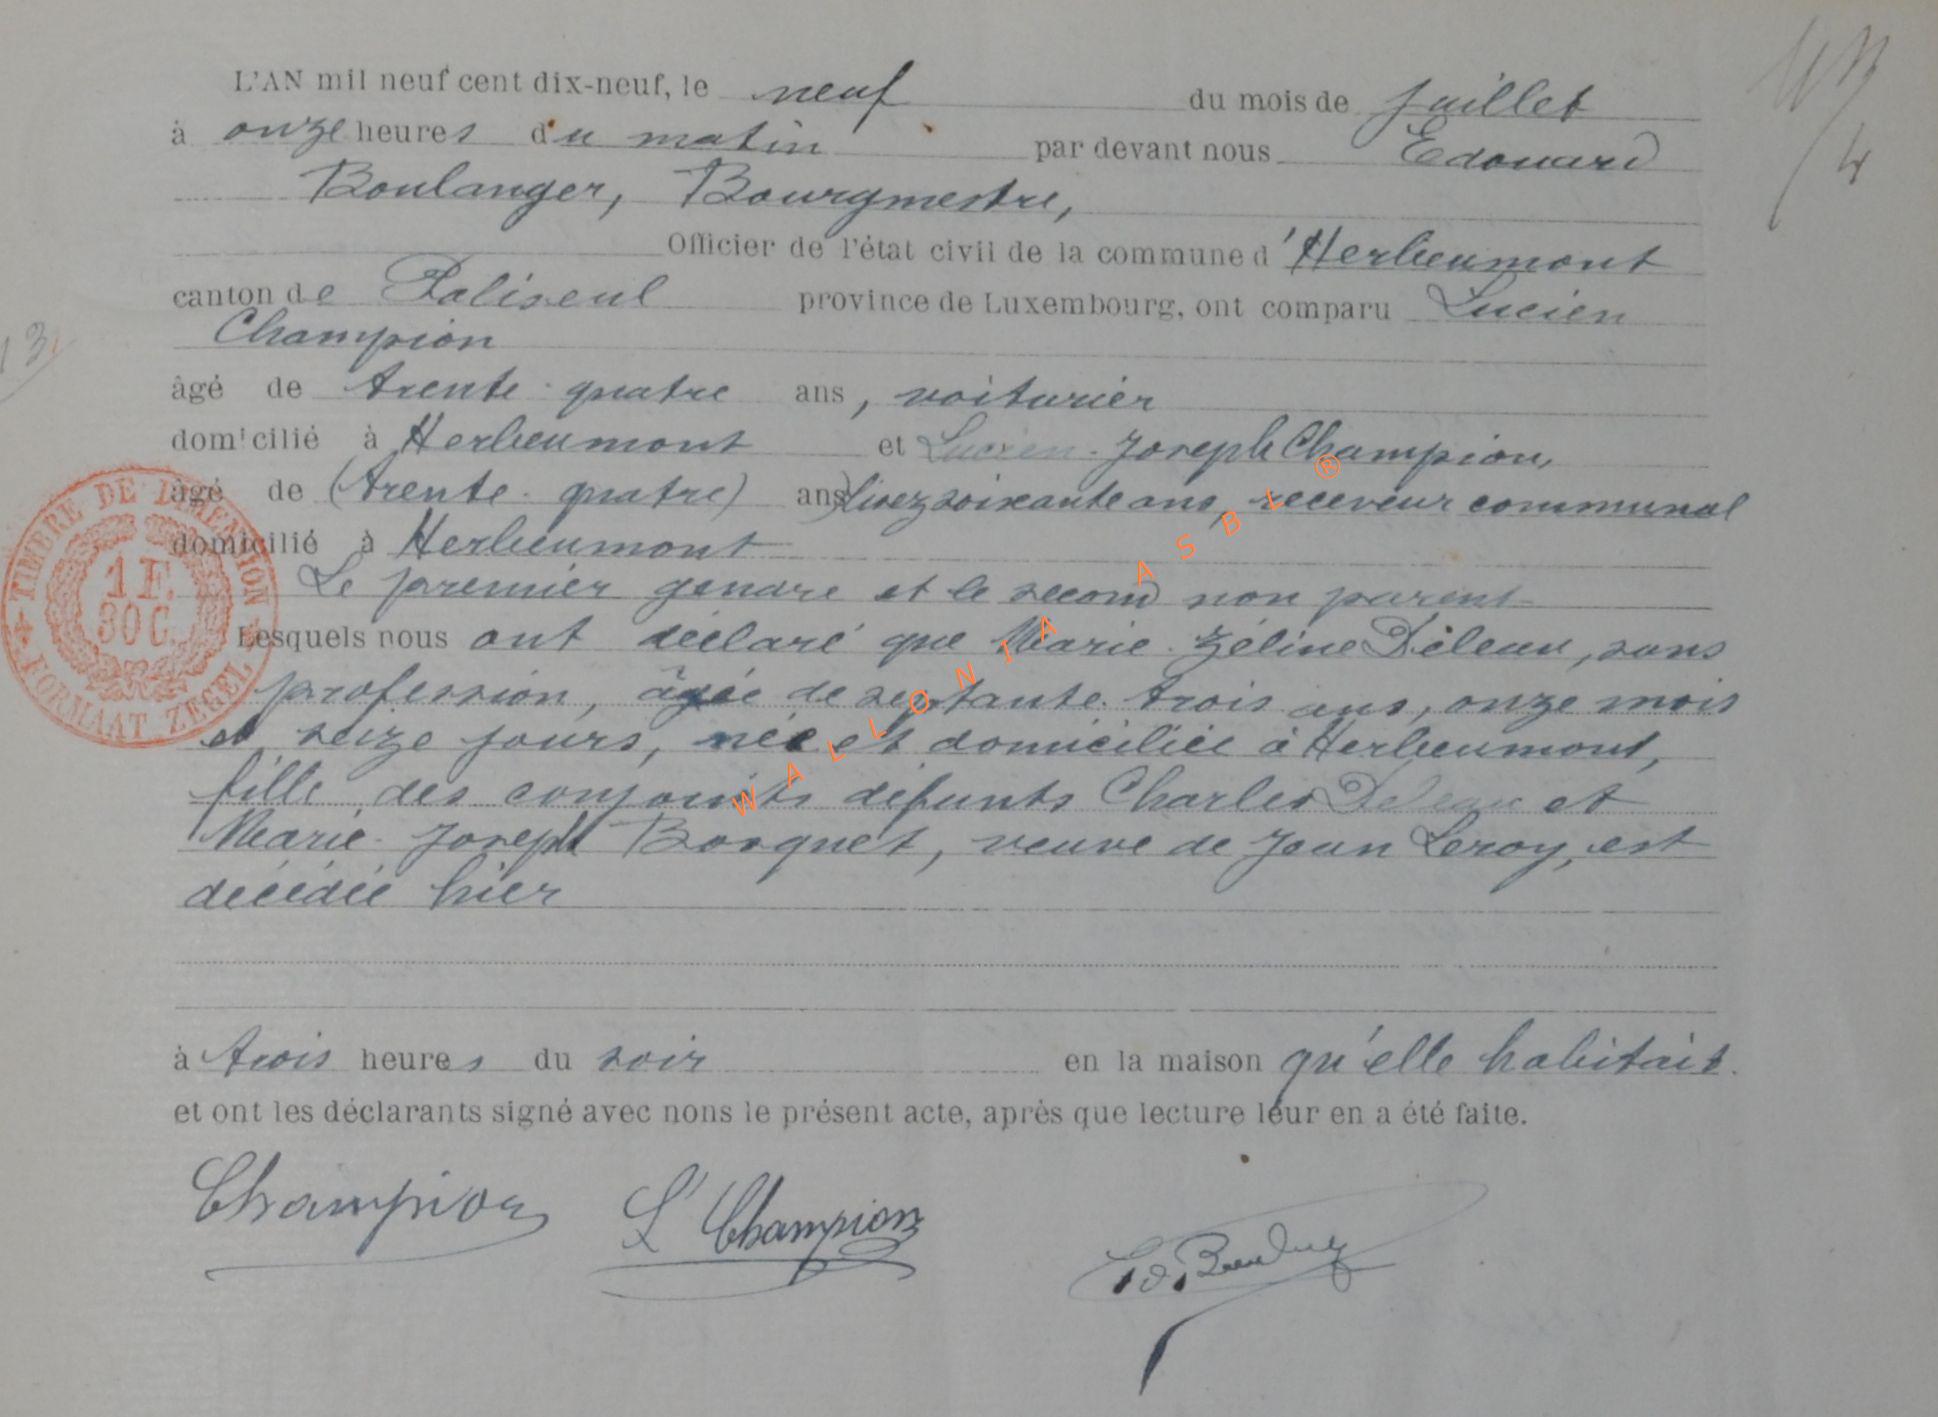 L'AN mil neuf cent dix-neuf, le neuf du mois de Juillet
à onze heures du matin par devant nous Edouard
Boulanger, Bourgmestre,
Officier de l'état civil de la commune d'Herbeumont
canton de Paliseul province de Luxembourg, ont comparu Lucien
Champion
âgé de trente-quatre ans, voiturier
domicilié à Herbeumont et Lucien-Joseph Champion,
âgé de (trente-quatre) ans) lisez soixante ans, receveur communal
domicilié à Herbeumont
Le premier gendre et le second non parent
Lesquels nous ont déclaré que Marie-Zéline Déleau, sans
profession, âgée de septante-trois ans, onze mois
et seize jours, née et domiciliée à Herbeumont,
fille des conjoints défunts Charles Déleau et
Marie-Joseph Bosquet, veuve de Jean Leroy, est
décédée hier
à trois heures du soir en la maison qu'elle habitait.
et ont les déclarants signé avec nons le présent acte, après que lecture leur en a été faite.
Champion L Champion
TIMBRE DE DIMENSION
1 F.
30 C.
FORMAAT ZEGEL
WALLONIA ASBL ®
13